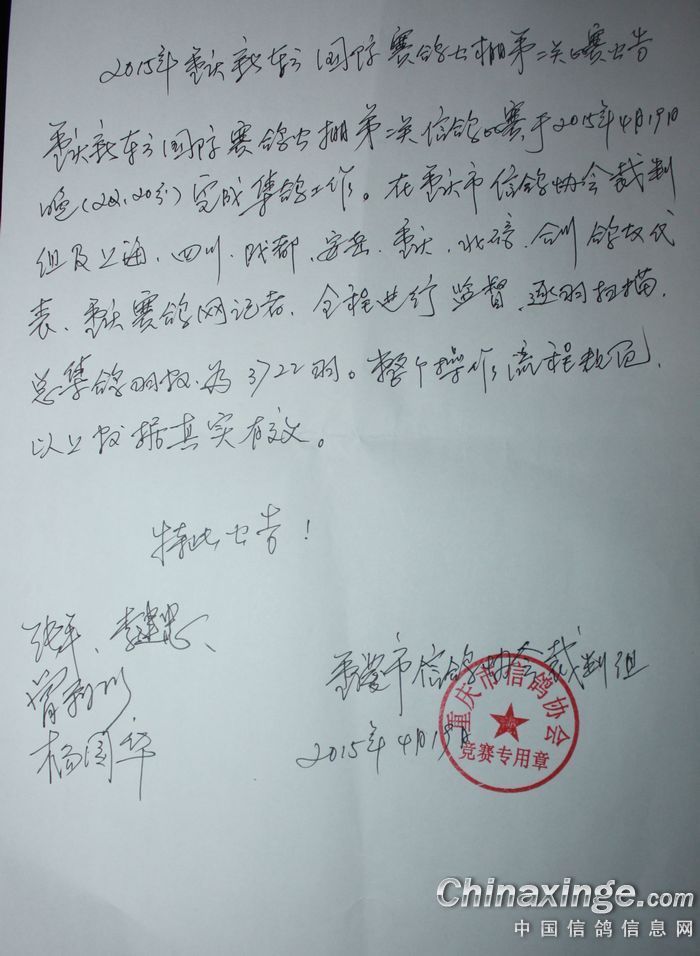 2015年重庆新东方国际赛鸽公棚第二关比赛公告
重庆新东方国际赛鸽公棚第二关信鸽比赛,于2015年4月19日
晚(22.20分)完成集鸽工作。在重庆市信鸽协会裁判
组及上海、四川、成都、安岳、重庆、北碚、合川鸽友代
表、重庆赛鸽网记者,全程进行监督,逐羽扫描,
总集鸽羽数为3722羽。整个操作流程规范,
以上数据真实有效。
特此公告!
张平、李建忠、
杨国华
重庆市信鸽协会裁判组
2015年4月19日
重庆市信鸽协会
竞赛专用章
Chinaxinge.com
中国信鸽信息网